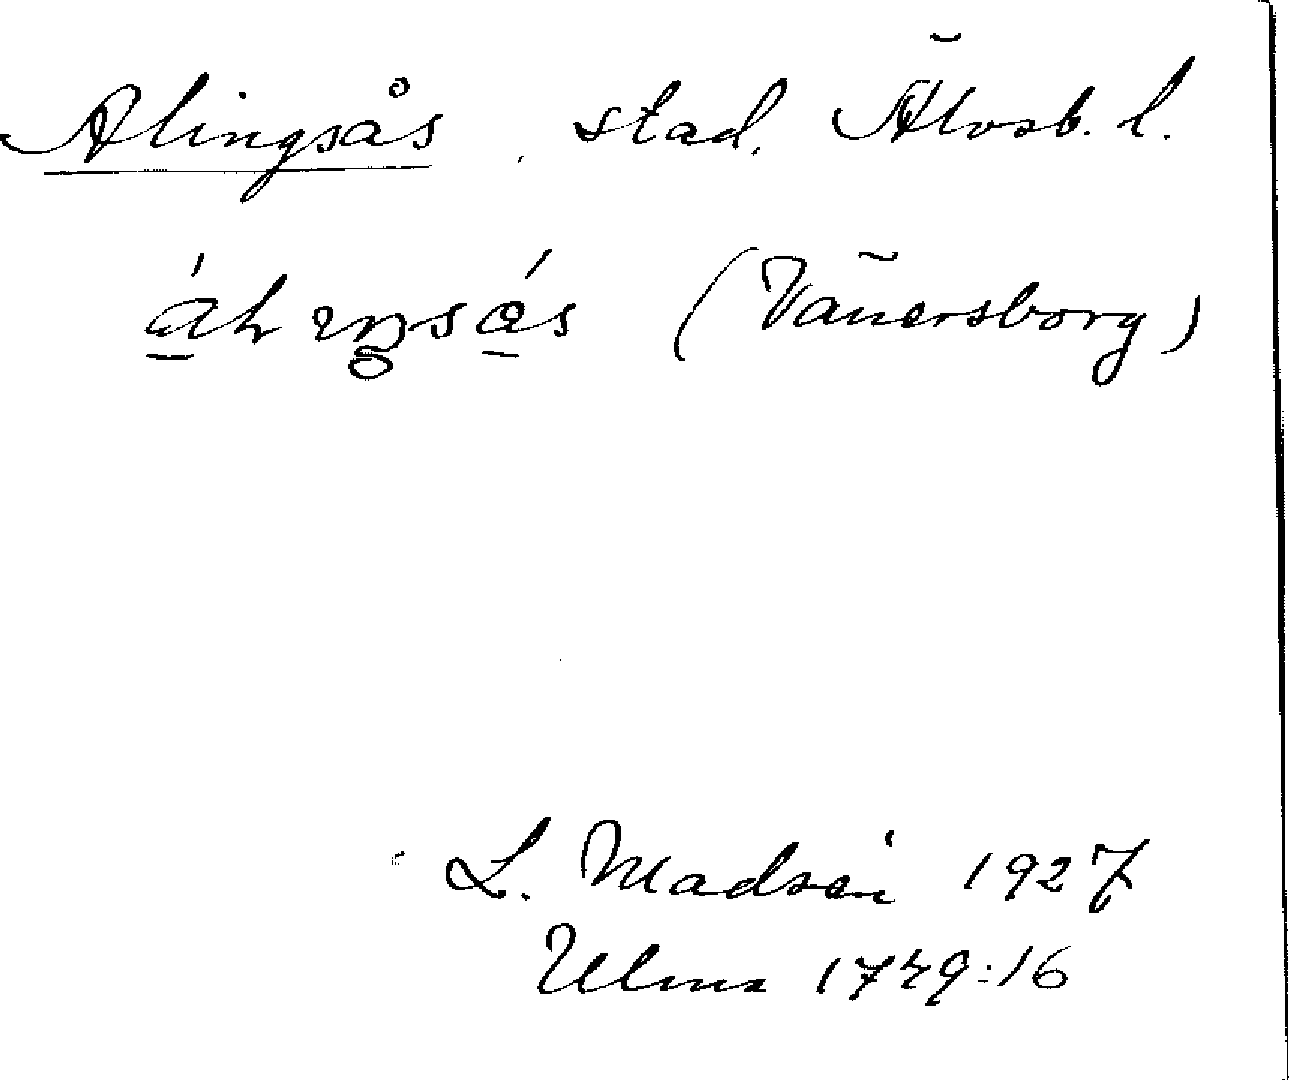 Alingsås, stad, Älvsb. l.
(Vänersborg)
L. Madsén 1927
Ulma 1749:16